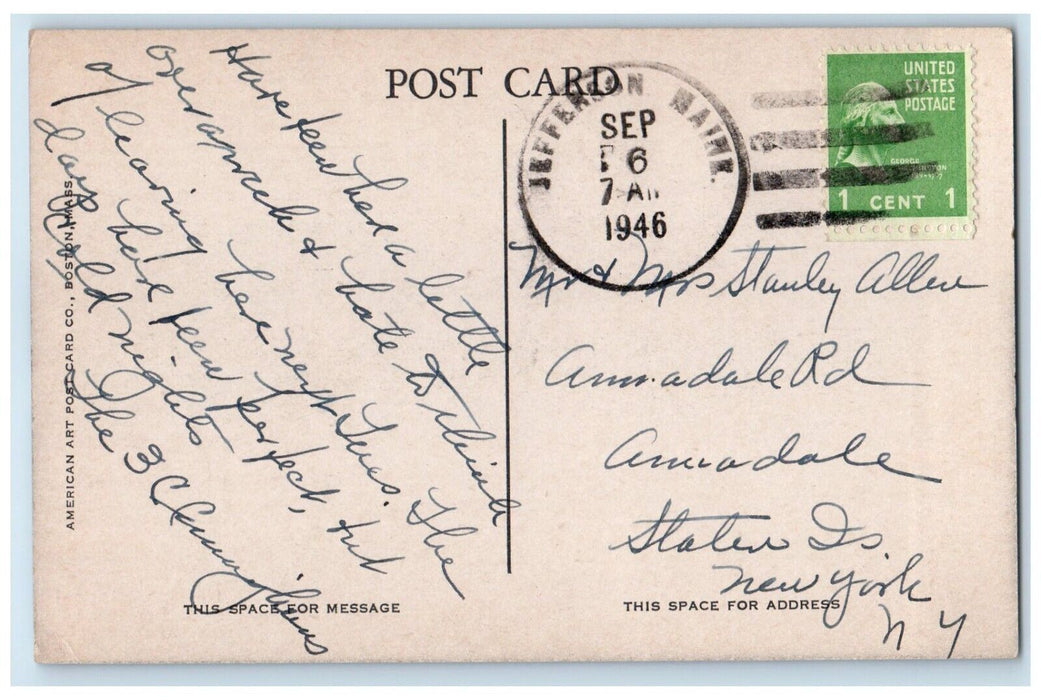 POST CARD
JEFFERSON MAINE.
SEP
6
7 AM
1946
UNITED
STATES
POSTAGE
GEORGE
1 CENT 1
Have been here a little
over a week & hate to think
of leaving here next Tues. The
days have been perfect, but
cold nights
The 3 Cunninghams
Mr & Mrs Stanley Allen
Annadale Rd
Annadale
Staten Is.
New York
N Y
AMERICAN ART POST CARD CO., BOSTON, MASS
THIS SPACE FOR MESSAGE
THIS SPACE FOR ADDRESS